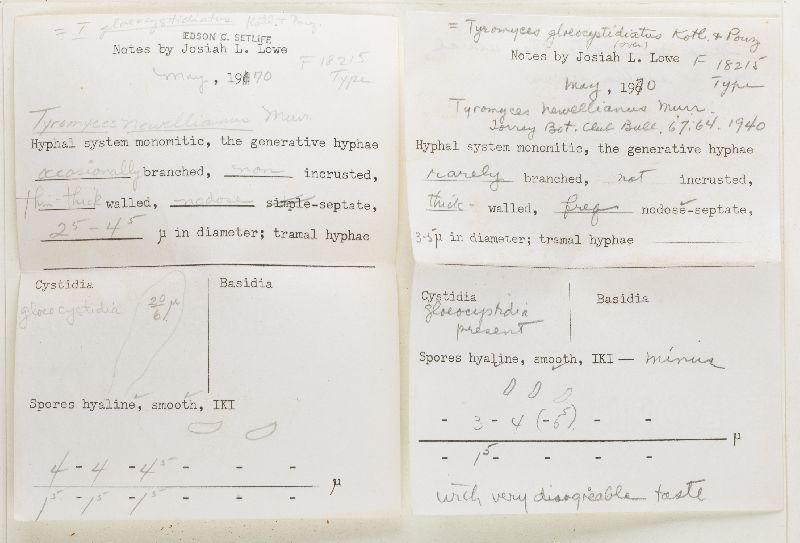 = T. gloeocystidiatus Kotl. & Pouz.
EDSON C. SETLIFF
Notes by Josiah L. Lowe
F 18215
May, 1970
Type
Tyromyces newellianus Murr.
Hyphal system monomitic, the generative hyphae
occasionally branched, non incrusted,
thin-thick walled, nodose simple-septate,
2⁵ - 4⁵ µ in diameter; tramal hyphae
Cystidia
Basidia
gloeocystidia
20/6 µ
Spores hyaline, smooth, IKI
4 - 4 - 4⁵ - - -
1⁵ - 1⁵ - 1⁵ - - -
µ
= Tyromyces gloeocystidiatus Kotl. & Pouz
(over)
Notes by Josiah L. Lowe
F 18215
May, 1970
Type
Tyromyces newellianus Murr.
Torrey Bot. Club Bull. 67:64. 1940
Hyphal system monomitic, the generative hyphae
rarely branched, not incrusted,
thick- walled, freq nodose-septate,
3-5µ in diameter; tramal hyphae
Cystidia
Basidia
gloeocystidia
present
Spores hyaline, smooth, IKI — minus
- 3 - 4 (-5⁵) - -
- 1⁵ - - -
µ
with very disagreeable taste